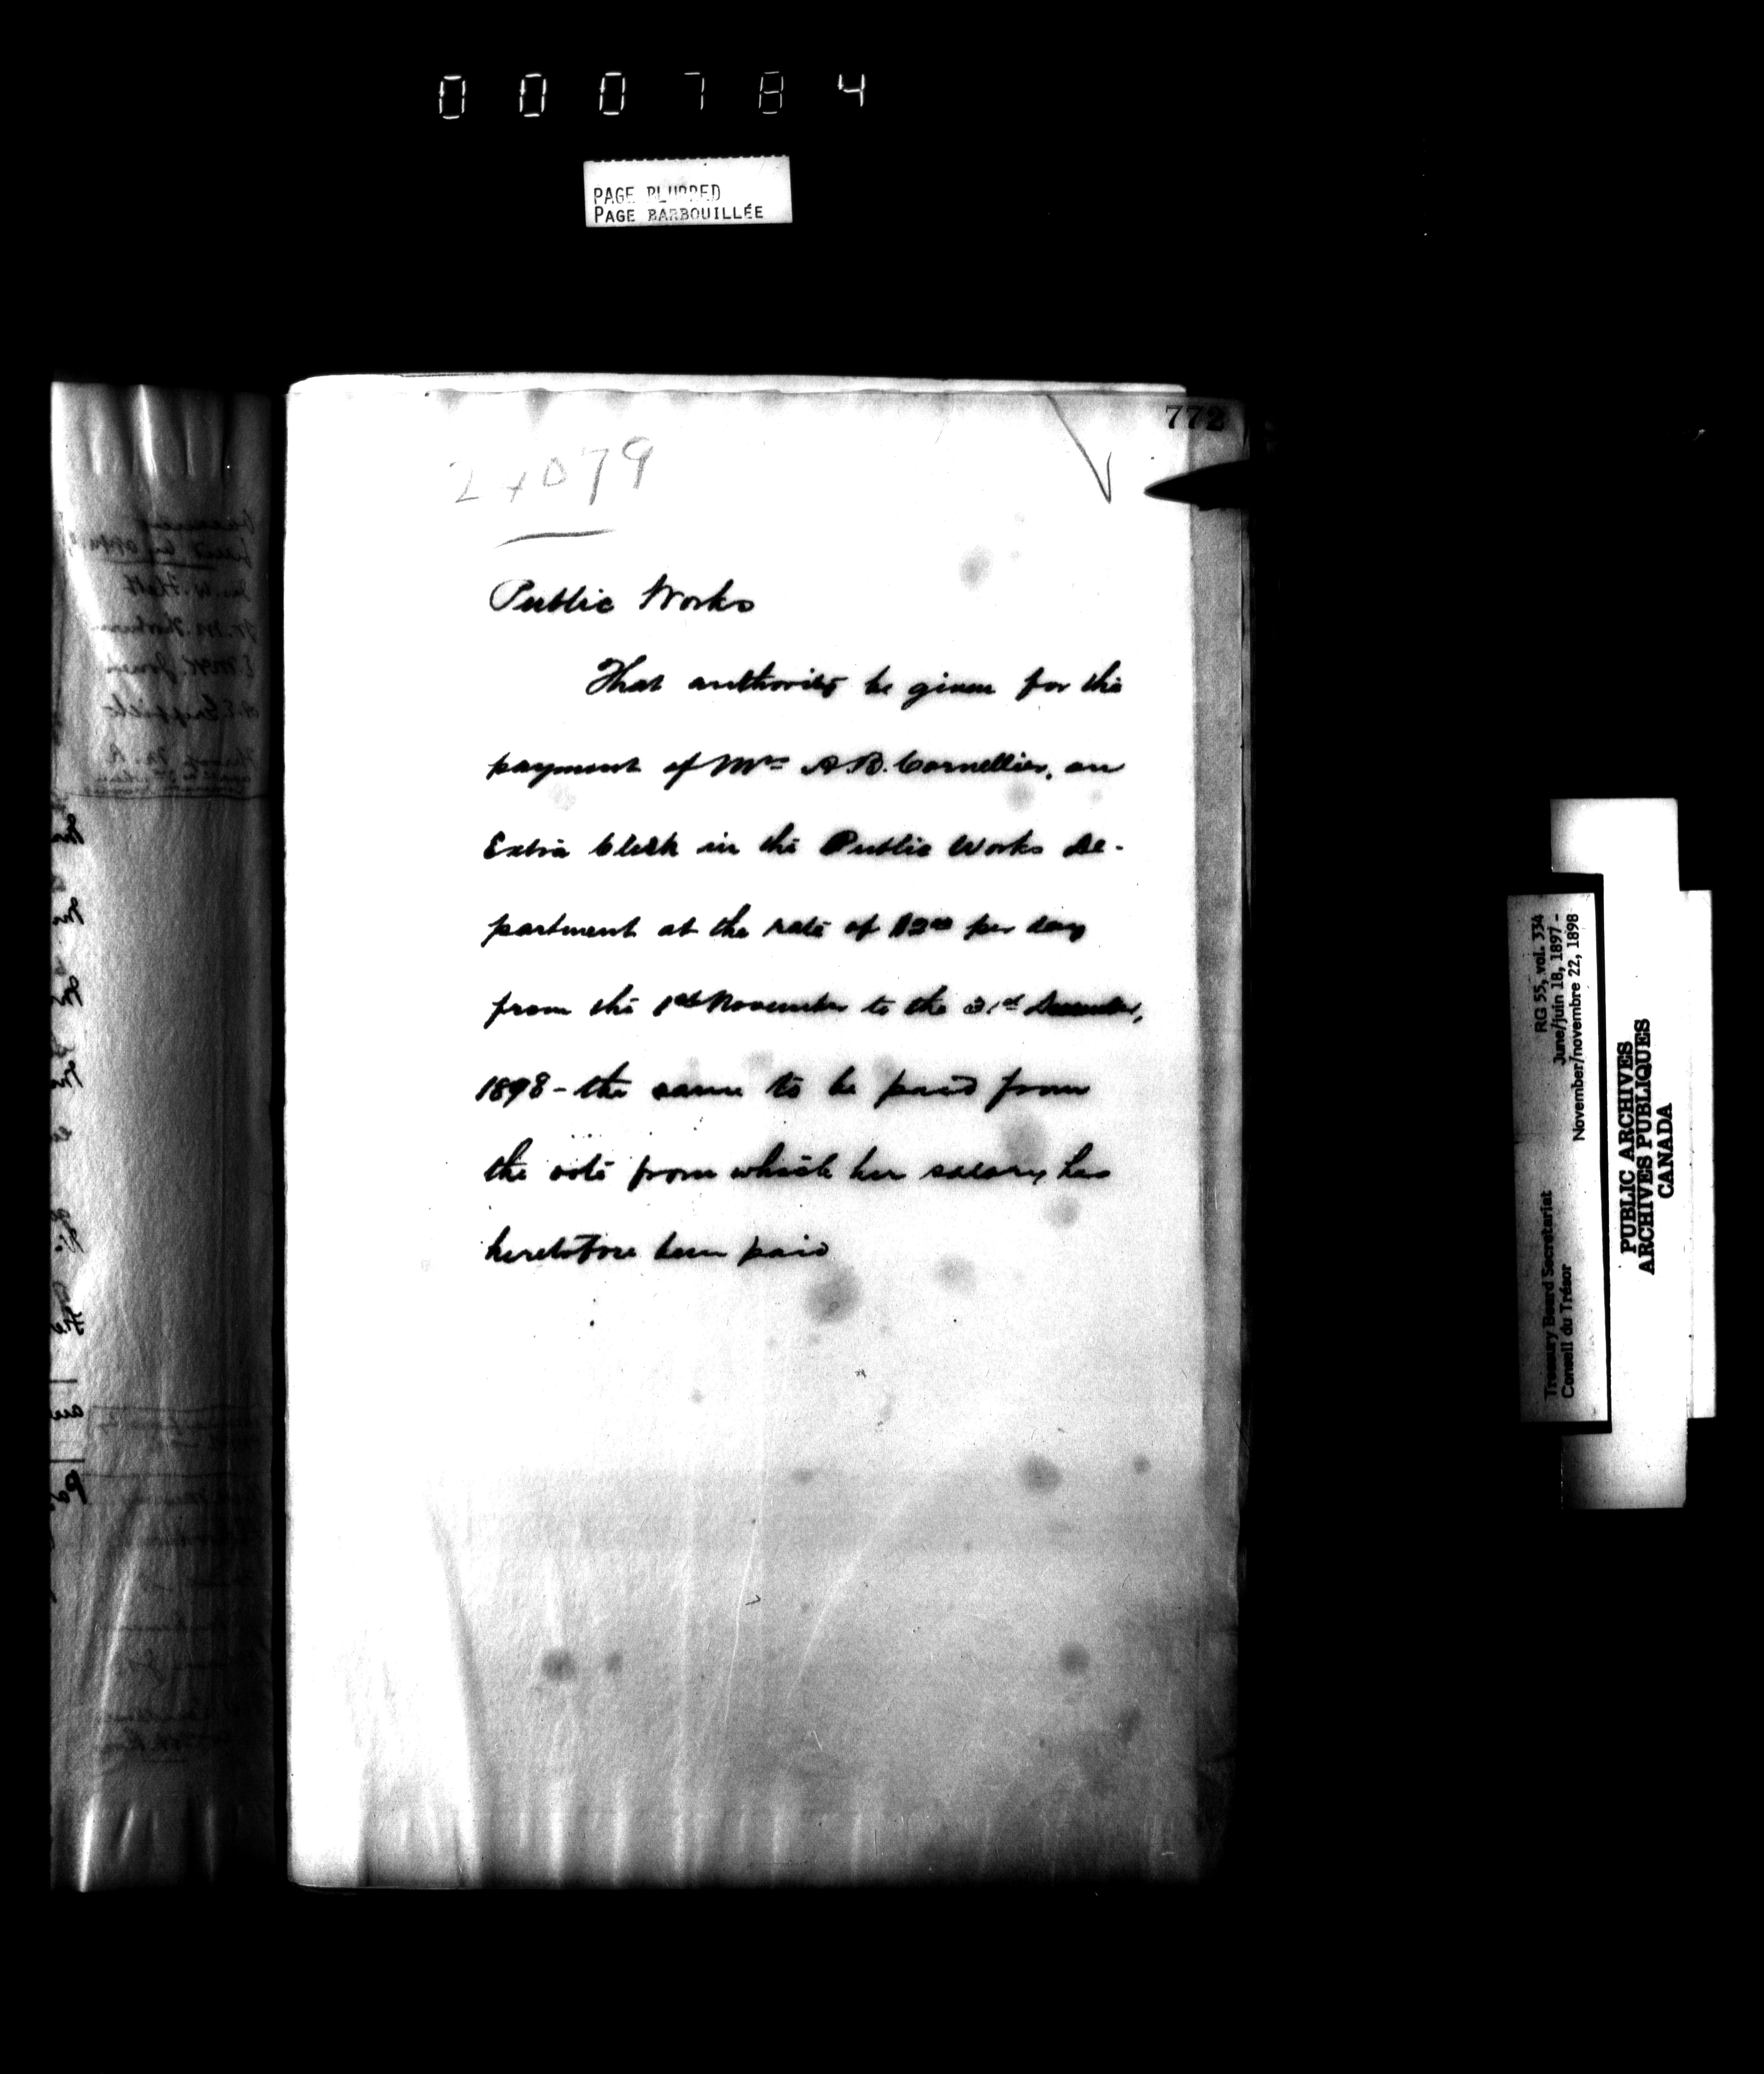 000784
PAGE BLURRED
PAGE BARBOUILLÉE
772
24079
Public Works
That authority be given for the
payment of Mrs A.B. Cornellier, an
Extra Clerk in the Public Works De-
partment at the rate of $2.00 per day
from the 1st November to the 31st December,
1898 - the same to be paid from
the vote from which her salary has
heretofore been paid
RG 55, vol. 334
June/juin 18, 1897 -
November/novembre 22, 1898
Treasury Board Secretariat
Conseil du Trésor
PUBLIC ARCHIVES
ARCHIVES PUBLIQUES
CANADA